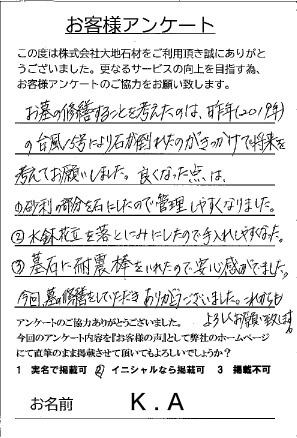 お客様アンケート
この度は株式会社大地石材をご利用頂き誠にありがと
うございました。更なるサービスの向上を目指す為、
お客様アンケートのご協力をお願い致します。
お墓の修繕することを考えたのは、昨年(2019年)
の台風15号により石が倒れたのがきっかけで将来を
考えてお願いしました。良くなった点は、
①砂利の部分を石にしたので管理しやすくなりました。
②水鉢花立を落とこみにしたので手入れしやすくなった。
③墓石に耐震棒をいれたので安心感がでました。
今回、墓の修繕をしていただきありがとうございました。これからも
よろしくお願い致します
アンケートのご協力ありがとうございました。
今回のアンケート内容を『お客様の声』として弊社のホームページ
にて直筆のまま掲載させて頂いてもよろしいでしょうか?
1 実名で掲載可 2 イニシャルなら掲載可 3 掲載不可
お名前 K.A